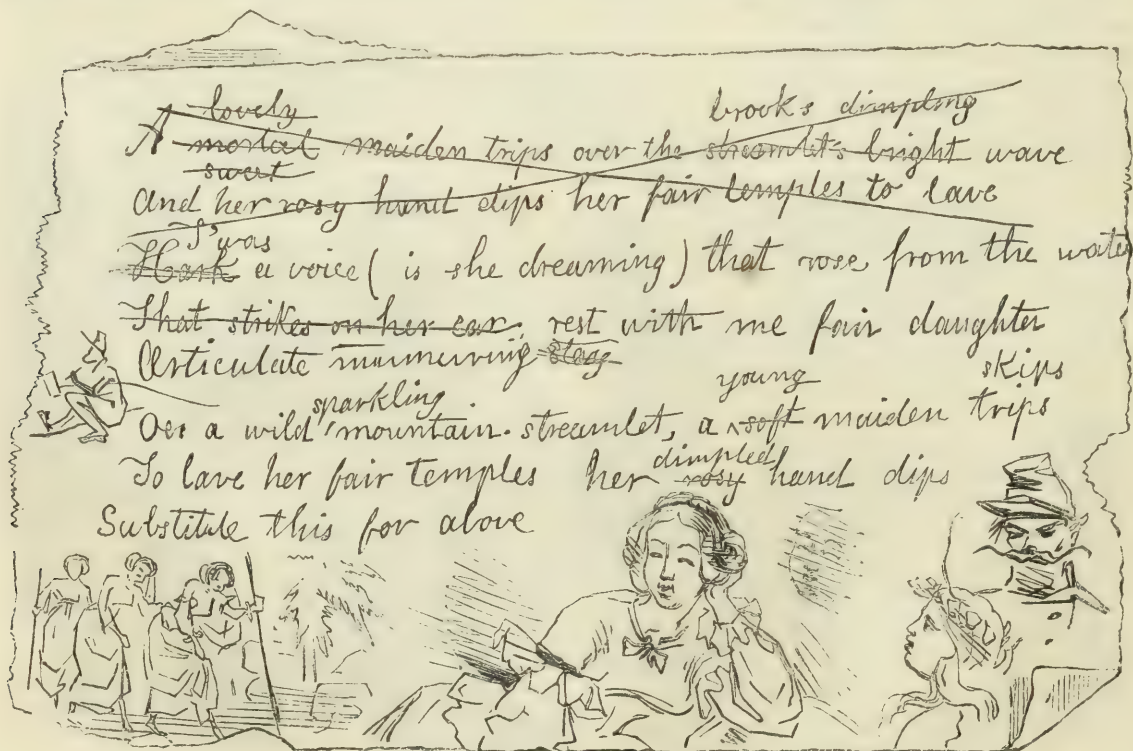 lovely brooks dimpling
A mortal maiden trips over the streamlet's bright wave
sweet
And her rosy hand dips her fair temples to lave
T'was
Hark a voice ( is she dreaming ) that rose from the water
That strikes on her ear. rest with me fair daughter
Articulate murmuring
sparkling young skips
Oer a wild mountain streamlet, a soft maiden trips
dimpled
To lave her fair temples her rosy hand dips
Substitute this for above